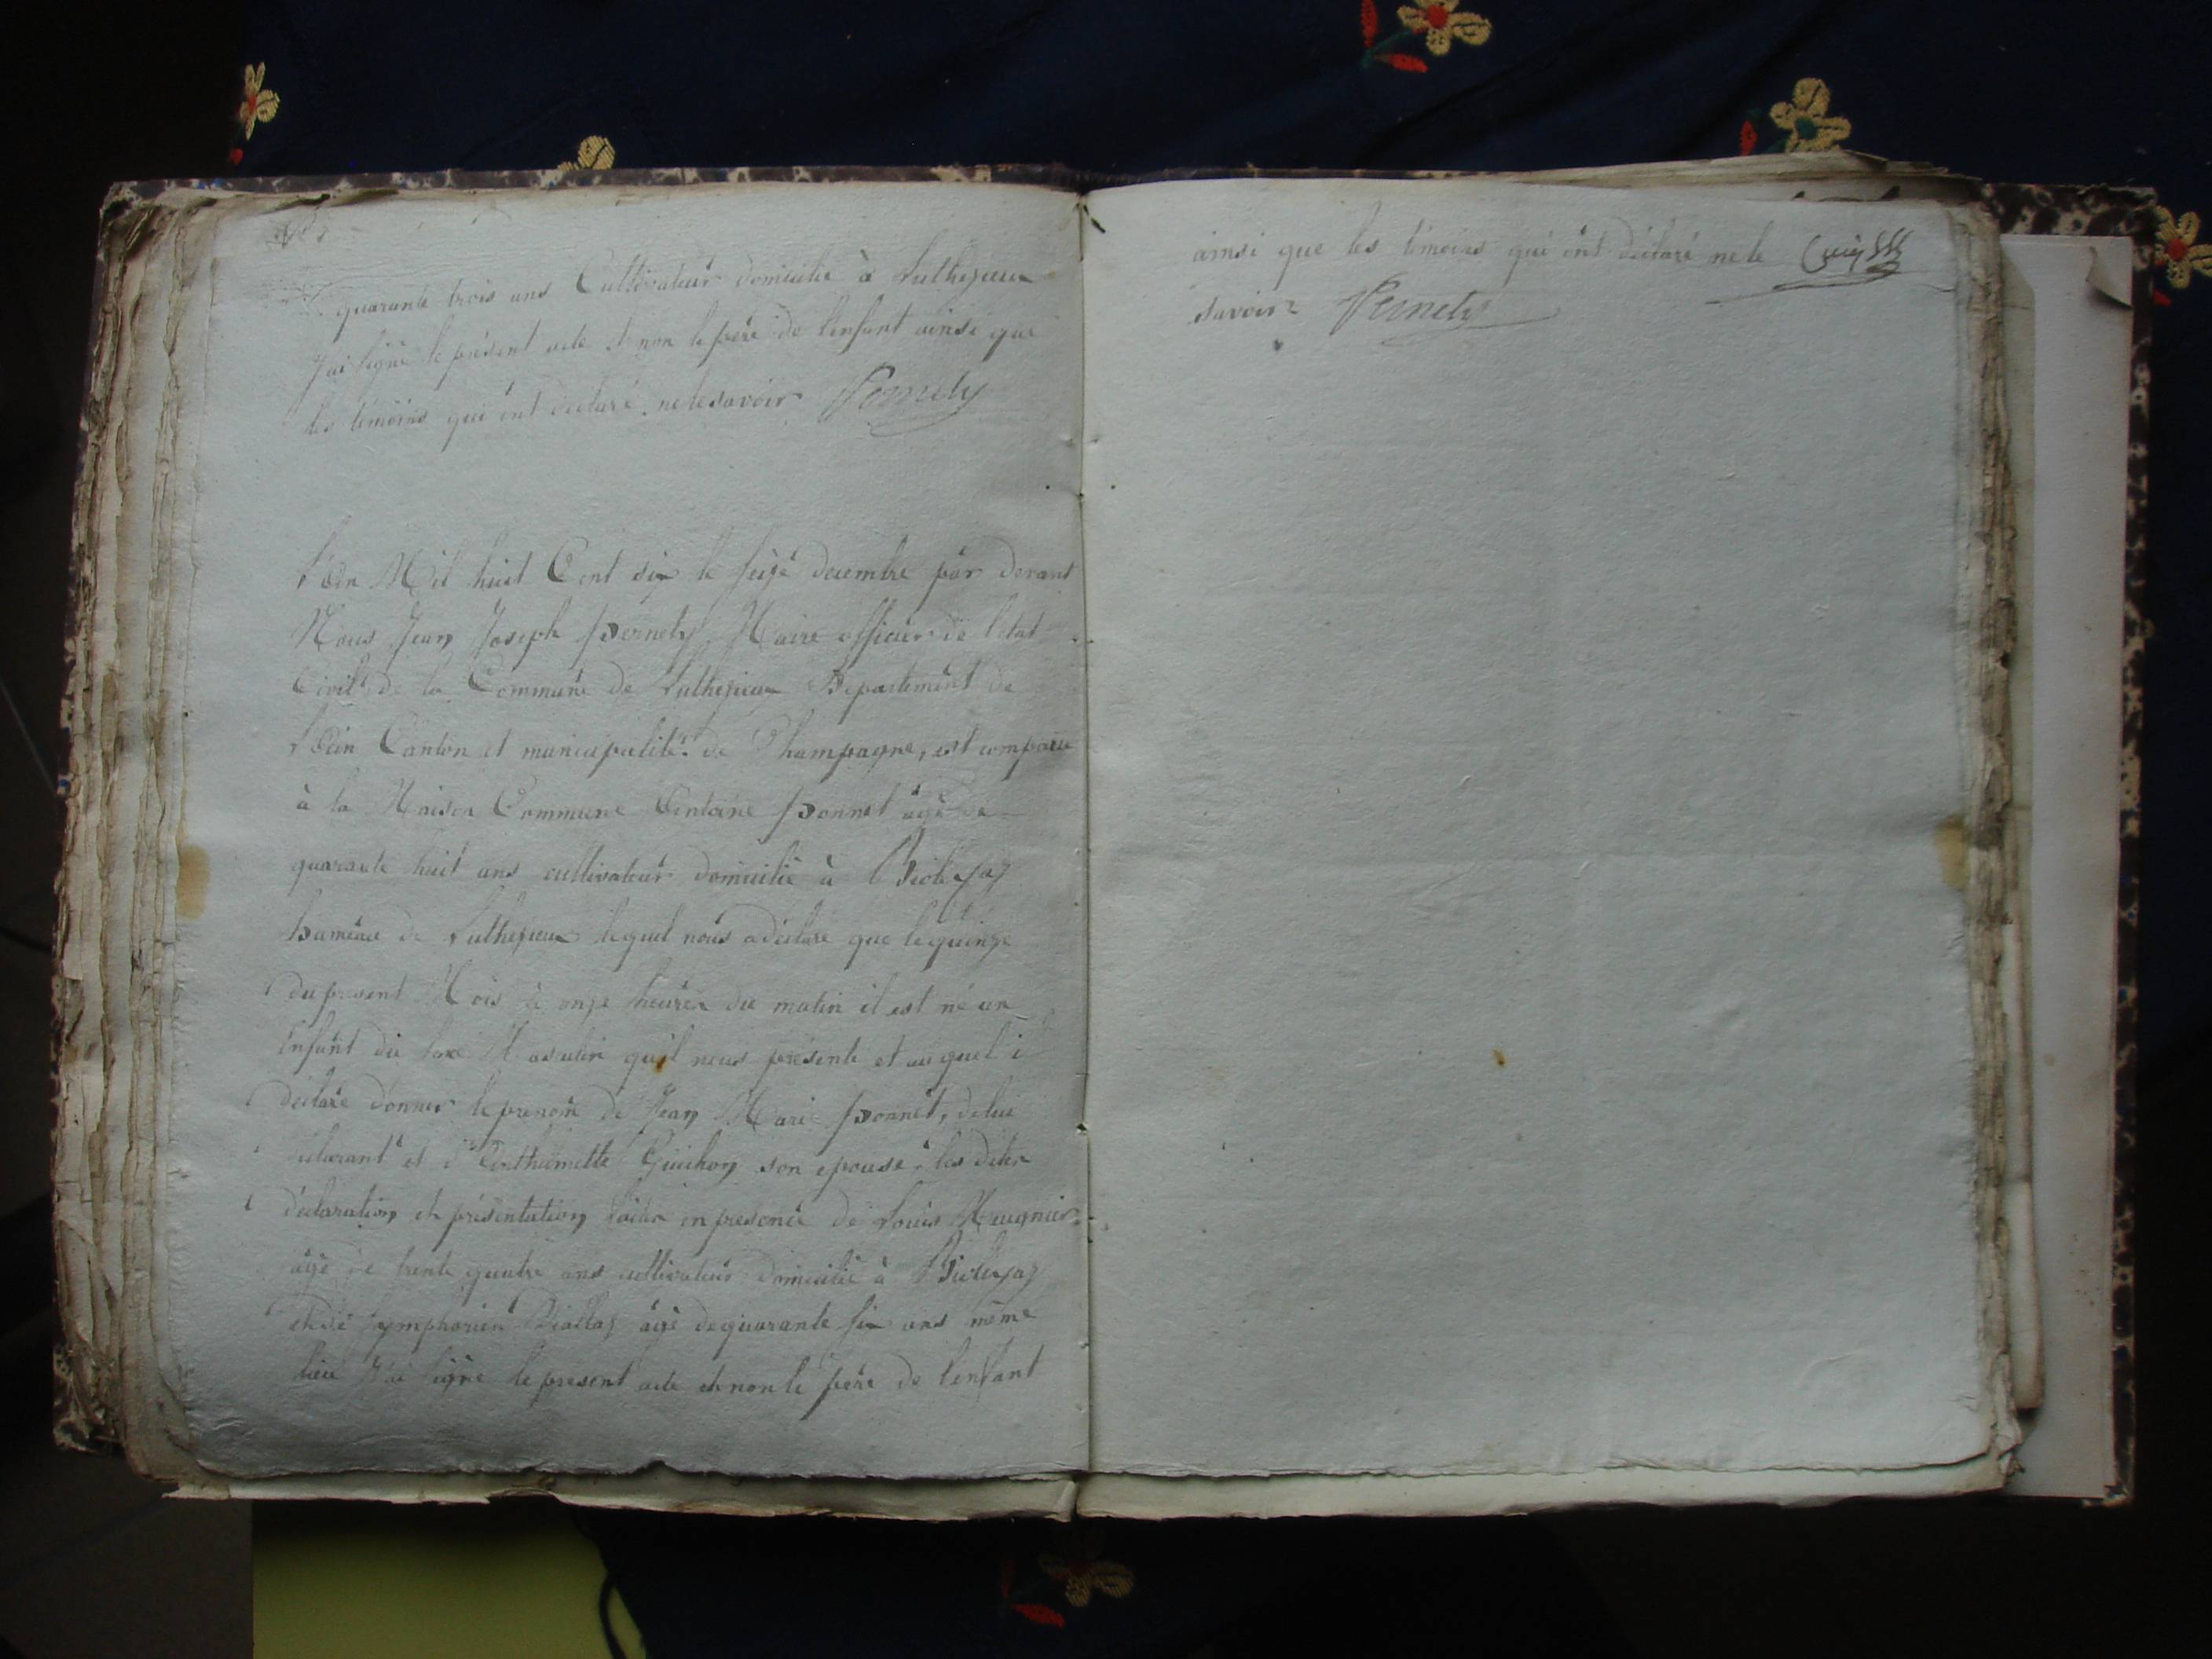 quarante trois ans Cultivateur domicilié à Luthezieux
J'ai signé le présent acte et non le père de l'enfant ainsi que
les témoins qui ont déclaré ne le savoir Pernety
L'an Mil huit Cent six le seize decembre par devant
Nous Jean Joseph Pernety Maire officier de l'etat
Civil de la Commune de Luthezieux Departement de
L'ain Canton et municipalité de Champagne, est comparu
à la Maison Commune Antoine Ponnet âgé de
quarante huit ans cultivateur domicilié à
hameau de Luthezieux lequel nous a déclaré que le quinze
du present Mois à onze heures du matin il est né un
Enfant du sexe Masculin qu'il nous présente et auquel il
déclare donner le prenom de Jean Marie Ponnet, de lui
déclarant et d'Anthelmette Guichon son epouse, les dites
déclaration et présentation faites en presence de Louis Meugnier
âgé de trente quatre ans cultivateur domicilié à
et de Symphorien âgé de quarante six ans même
lieu J'ai signé le present acte et non le père de l'enfant
ainsi que les témoins qui ont déclaré ne le
savoir Pernety